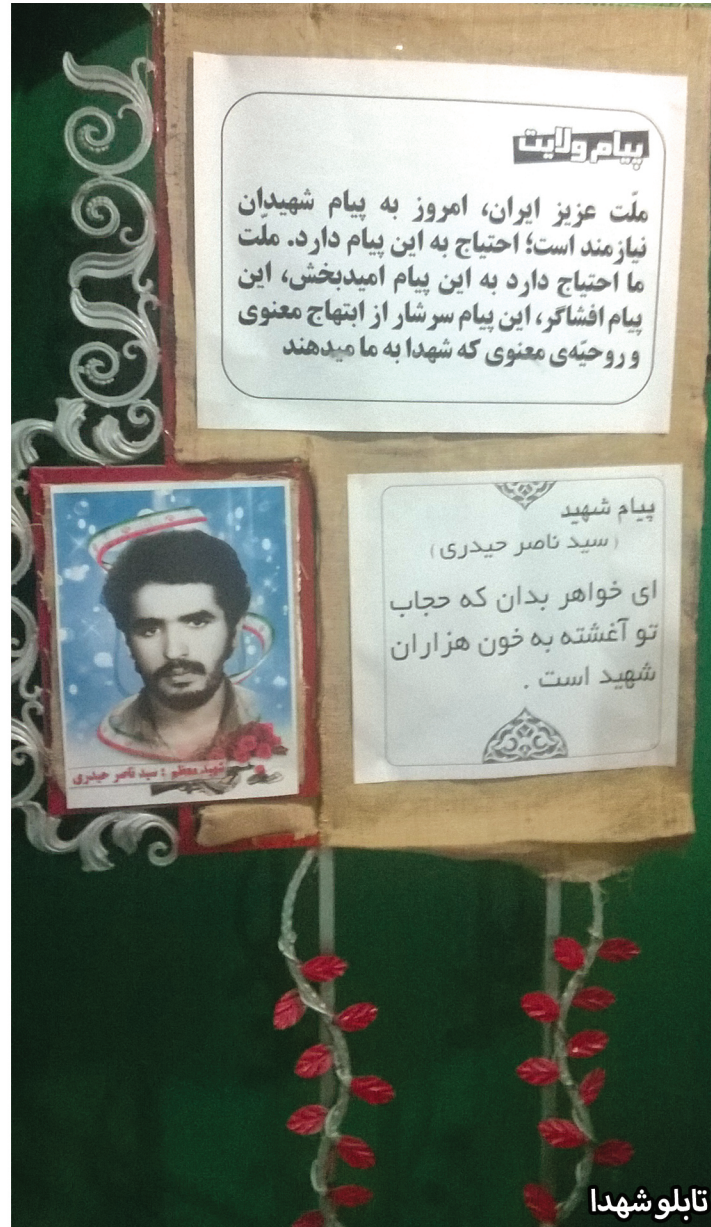 پیام ولایت
ملّت عزیز ایران، امروز به پیام شهیدان
نیازمند است؛ احتیاج به این پیام دارد. ملّت
ما احتیاج دارد به این پیام امیدبخش، این
پیام افشاگر، این پیام سرشار از ابتهاج معنوی
و روحیّه‌ی معنوی که شهدا به ما میدهند
پیام شهید
(سید ناصر حیدری)
ای خواهر بدان که حجاب
تو آغشته به خون هزاران
شهید است .
شهید معظم : سید ناصر حیدری
تابلو شهدا